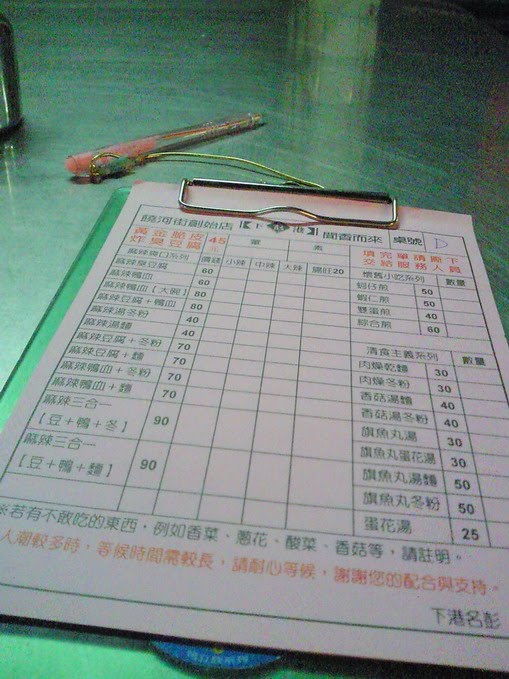 饒河街創始店 【下港】 聞香而來 桌號
黃金脆皮炸臭豆腐 45元 葷 素 填完單請撕下交給服務人員
麻辣爽口系列 價錢 小辣 中辣 大辣 腸旺20 懷舊小吃系列 數量
麻辣臭豆腐 60 蚵仔煎 50
麻辣鴨血 60 蝦仁煎 50
麻辣鴨血【大碗】 80 雙蛋煎 40
麻辣豆腐+鴨血 80 綜合煎 60
麻辣湯粉 40
麻辣湯麵 40 清食主義系列 數量
麻辣豆腐+冬粉 70 肉燥乾麵 30
麻辣豆腐+麵 70 肉燥冬粉 30
麻辣鴨血+冬粉 70 香菇湯麵 40
麻辣鴨血+麵 70 香菇湯冬粉 40
麻辣三合一 【豆+鴨+冬】 90 旗魚丸湯 30
旗魚丸蛋花湯 30
麻辣三合一 【豆+鴨+麵】 90 旗魚丸湯麵 50
旗魚丸冬粉 50
蛋花湯 25
※若有不敢吃的東西，例如香菜、蔥花、酸菜、香菇等，請註明。
人潮較多時，等候時間需較長，請耐心等候，謝謝您的配合與支持。
下港名彭